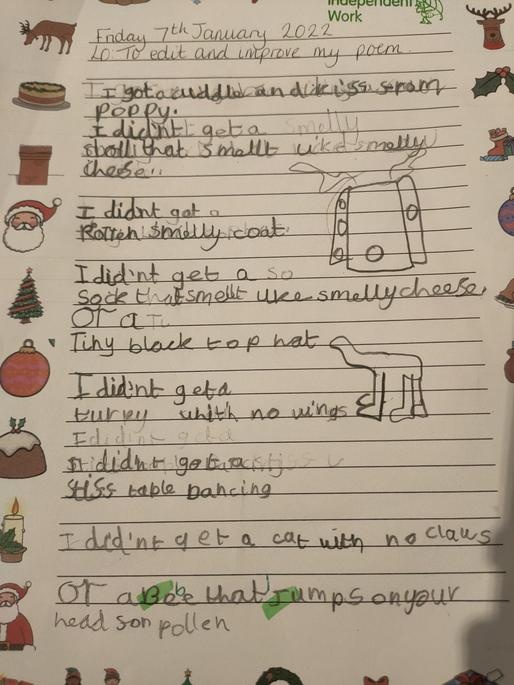 Independent
Work
Friday 7th January 2022
LO: To edit and improve my poem.
I got a cuddle and kiss from
poppy.
I didn't get a smelly
that smellt like smelly
cheese..
I didnt got a
Rotten smelly coat.
I did'nt get a so
sock that smellt like smelly cheese,
Or a
Tiny black top hat
I did'nt get a
turky with no wings
I did'nt get a
I didn't got a
table Dancing
I did'nt get a cat with no claws
Or a Bee that Jumps on your
head son pollen